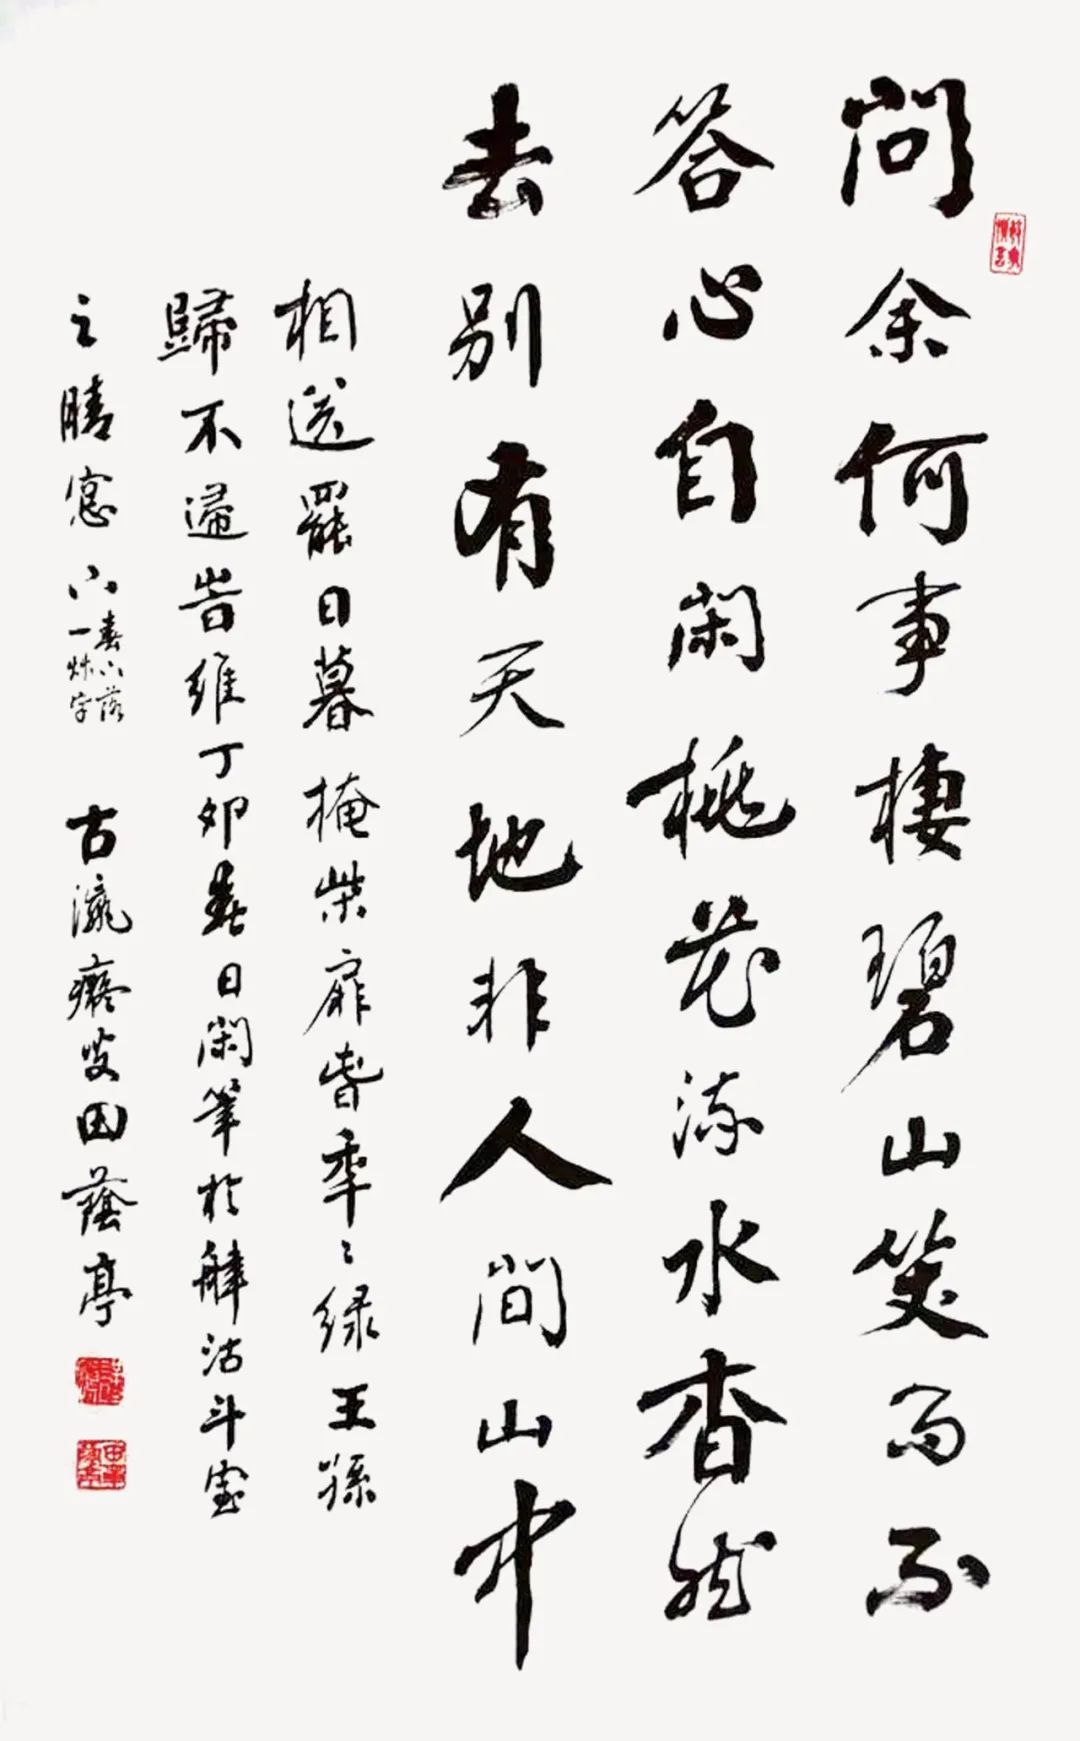 問余何事棲碧山笑而不
答心自閑桃花流水杳然
去别有天地非人間山中
相送罷日暮掩柴扉春年〻緑王孫
歸不歸旹維丁卯春日閑筆於津沽斗室
之晴窓下
春下落
一艸字
古瀛癡叟田蔭亭